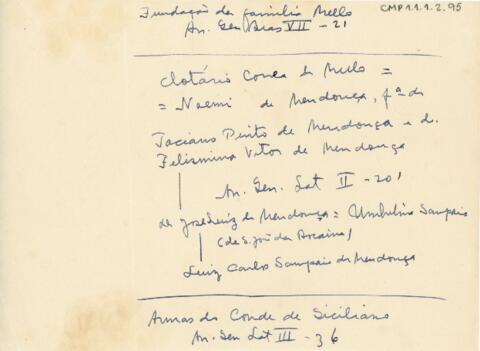 Fundação da familia Mello
CMP 1.1.1.2.95
An. Gen. Bras VII - 21
Clotário Correa de Mello =
= Noemi de Mendonça, fª de
Taciano Pinto de Mendonça e d.
Felismina Vitor de Mendonça
An. Gen. Lat II - 201
de José Luiz de Mendonça = Umbelina Sampaio
(de S. João da Bocaina)
Luiz Carlos Sampaio de Mendonça
Armas do Conde de Siciliano
An. Gen Lat III - 36